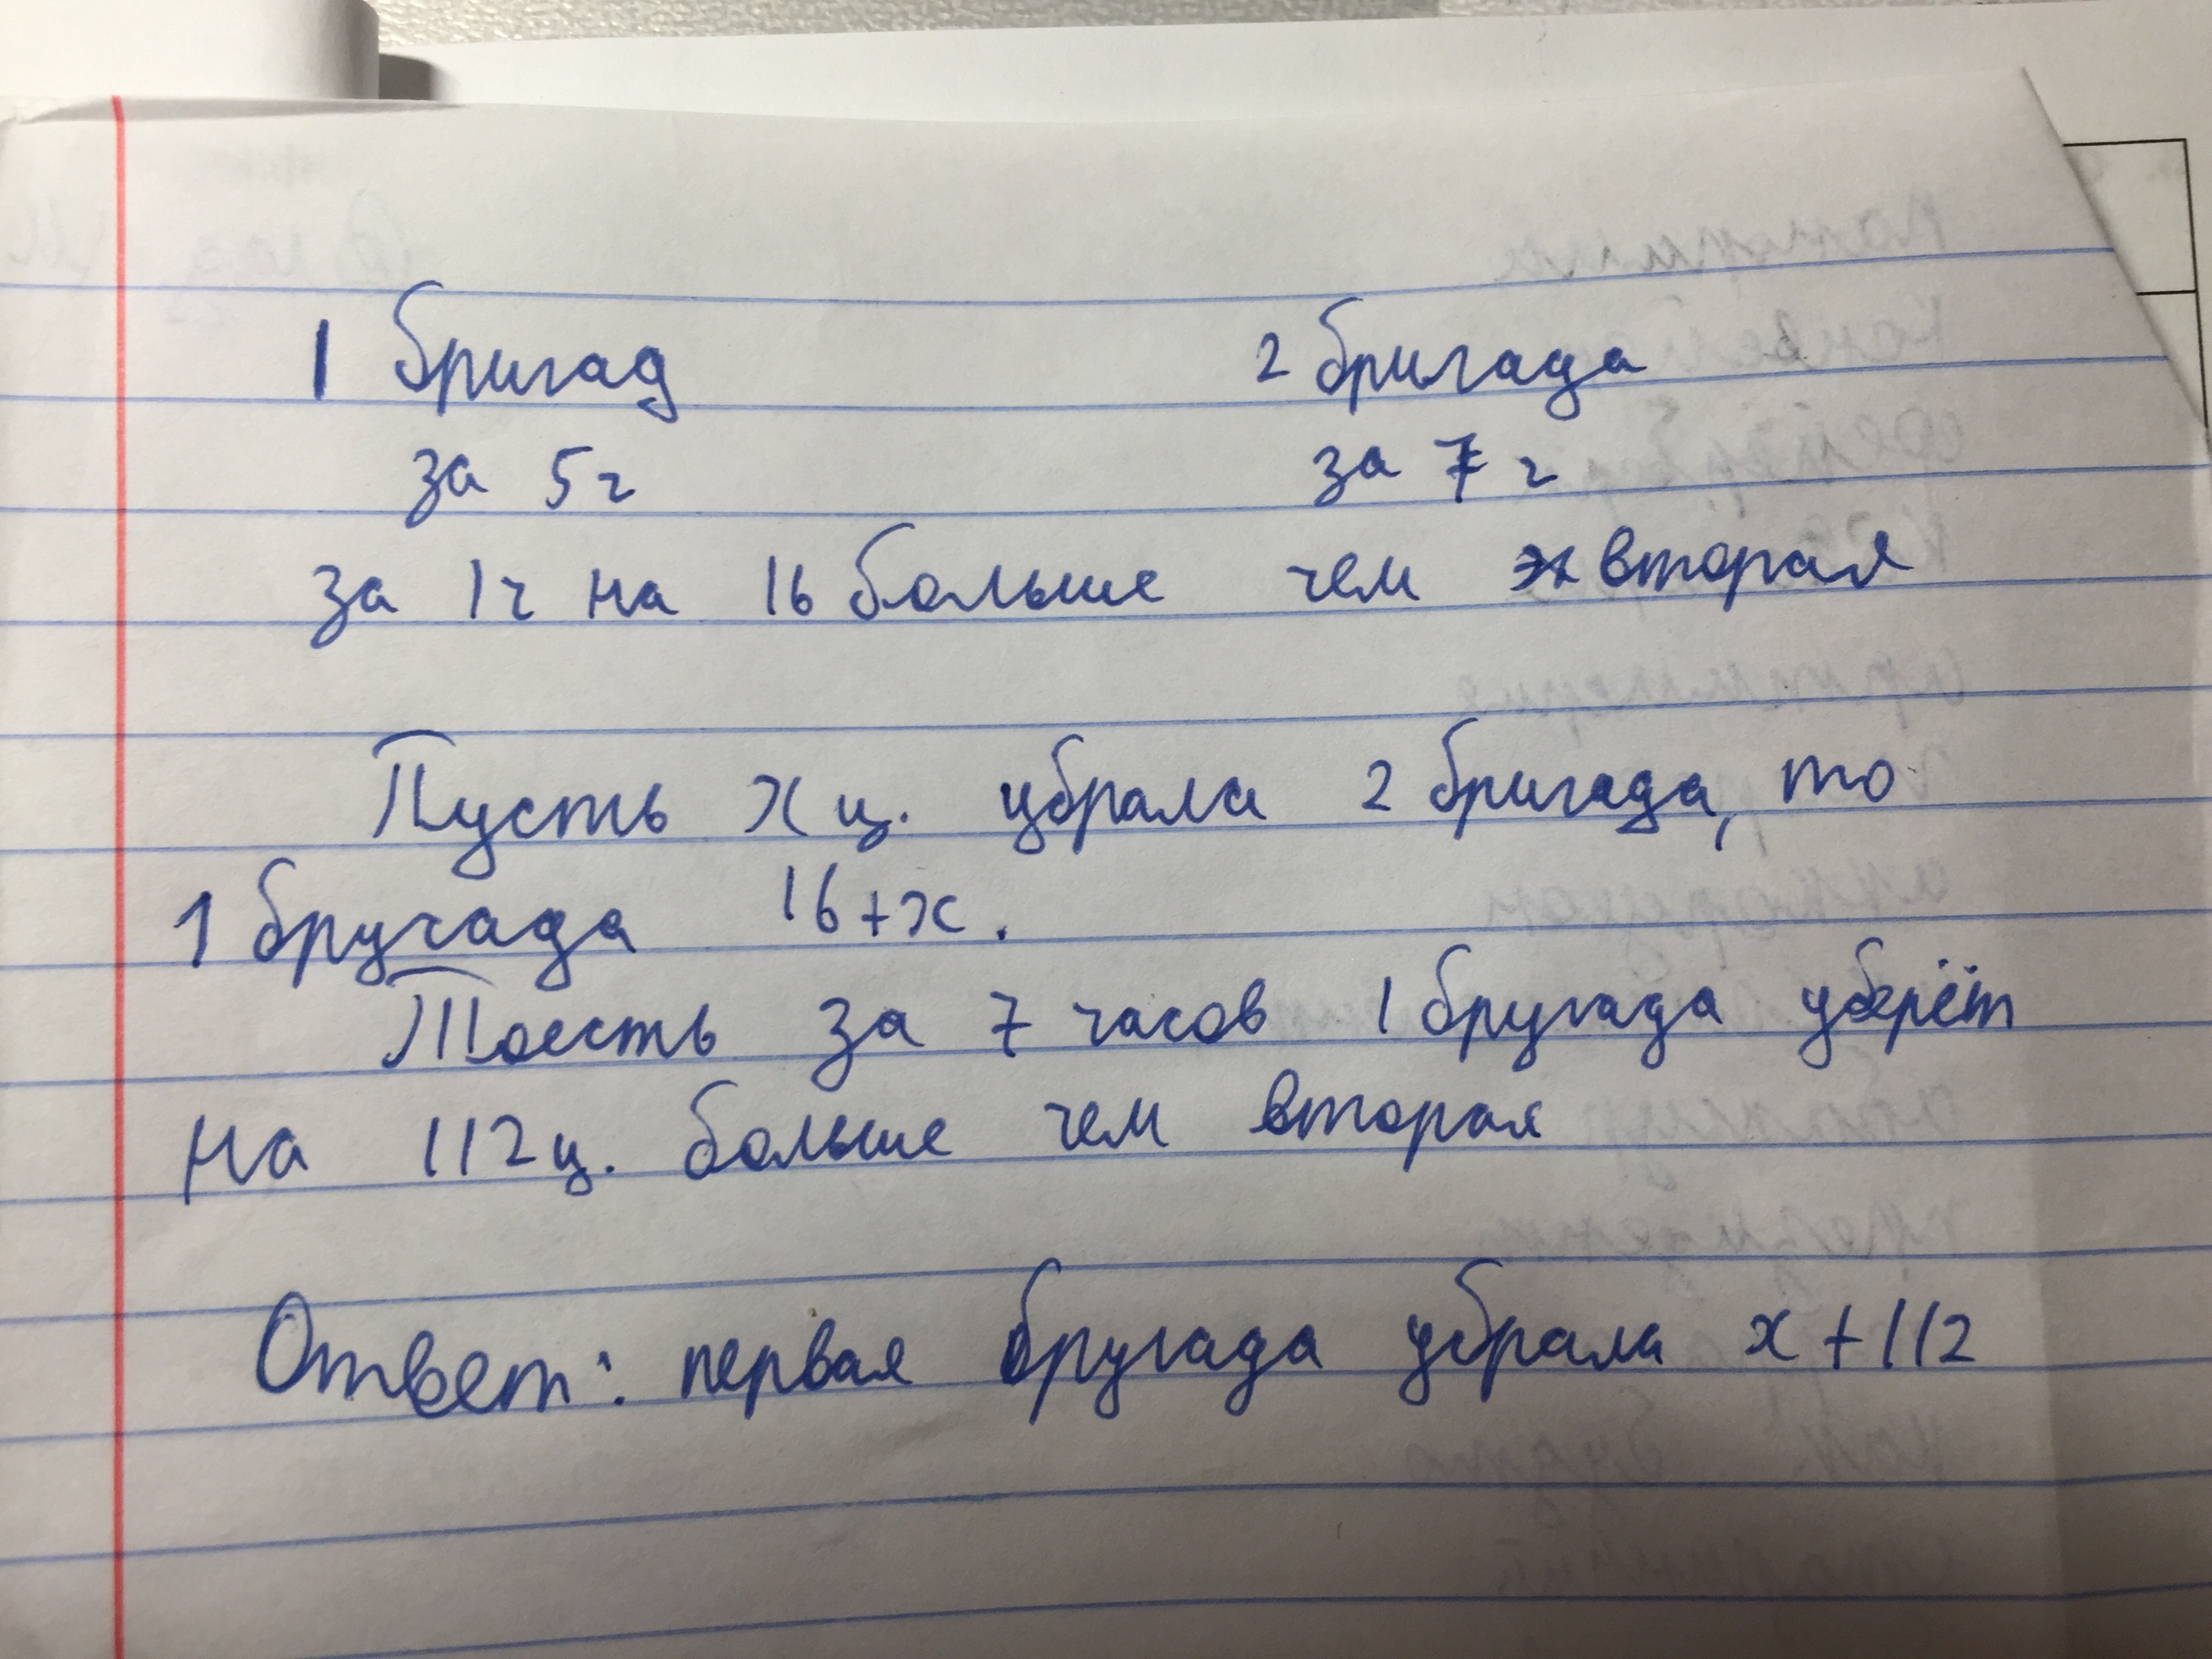 1 бригад 2 бригада
за 5ч за 7 ч
за 1ч на 16 больше чем вторая
Пусть x ц. убрала 2 бригада, то
1 бругада 16+x.
Тоесть за 7 часов 1 бругада уберёт
на 112ц. больше чем вторая
Ответ: первая бругада убрала x+112